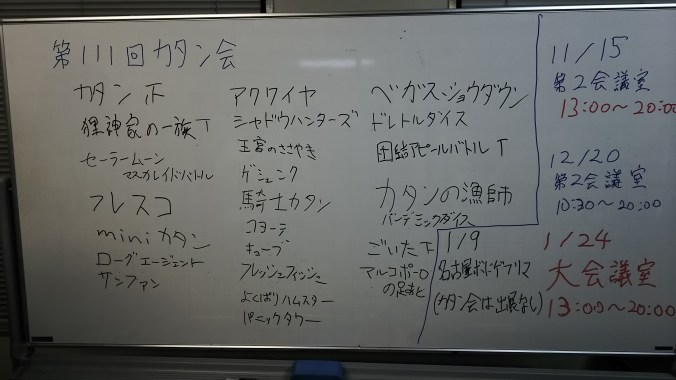 第111回カタン会
カタン正
狸神家の一族T
セーラームーン
マスカレイドバトル
フレスコ
miniカタン
ローグエージェント
サンファン
アクワイヤ
シャドウハンターズ
王宮のささやき
ゲシェンク
騎士カタン
コヨーテ
キューブ
フレッシュフィッシュ
よくばりハムスター
パニックタワー
ベガスショウダウン
ドレトルダイス
団結アピールバトルT
カタンの漁師
パンデミックダイス
ごいた下
マルコポーロ
の足あと
11/15
第2会議室
13:00~20:00
12/20
第2会議室
10:30~20:00
1/9
名古屋ボドゲフリマ
(カタン会は出展なし)
1/24
大会議室
13:00~20:00